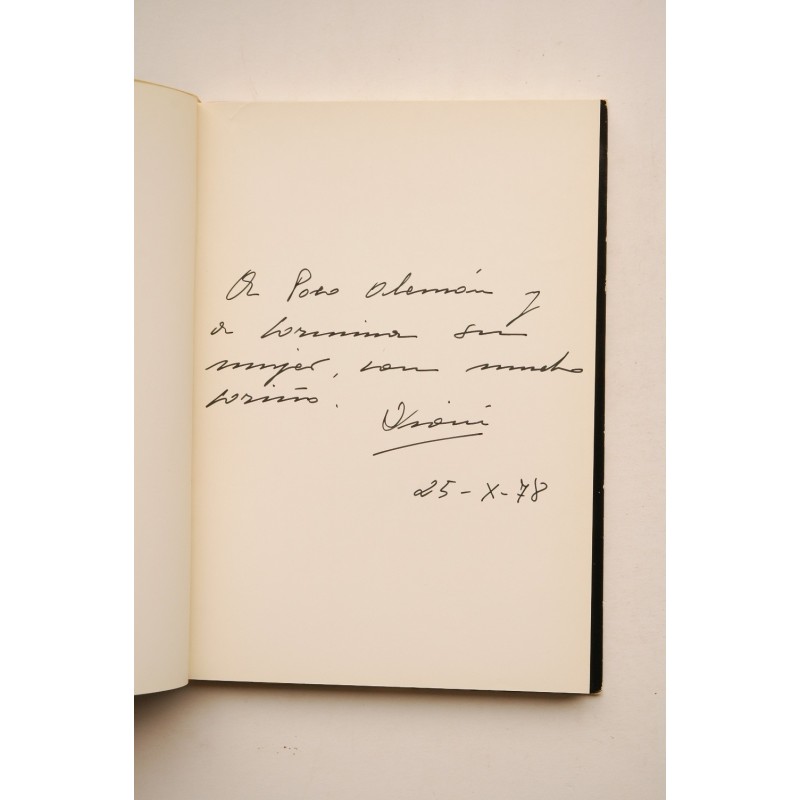 A Paco Alemán y
a Carmina su
mujer, con mucho
cariño.
25-X-78